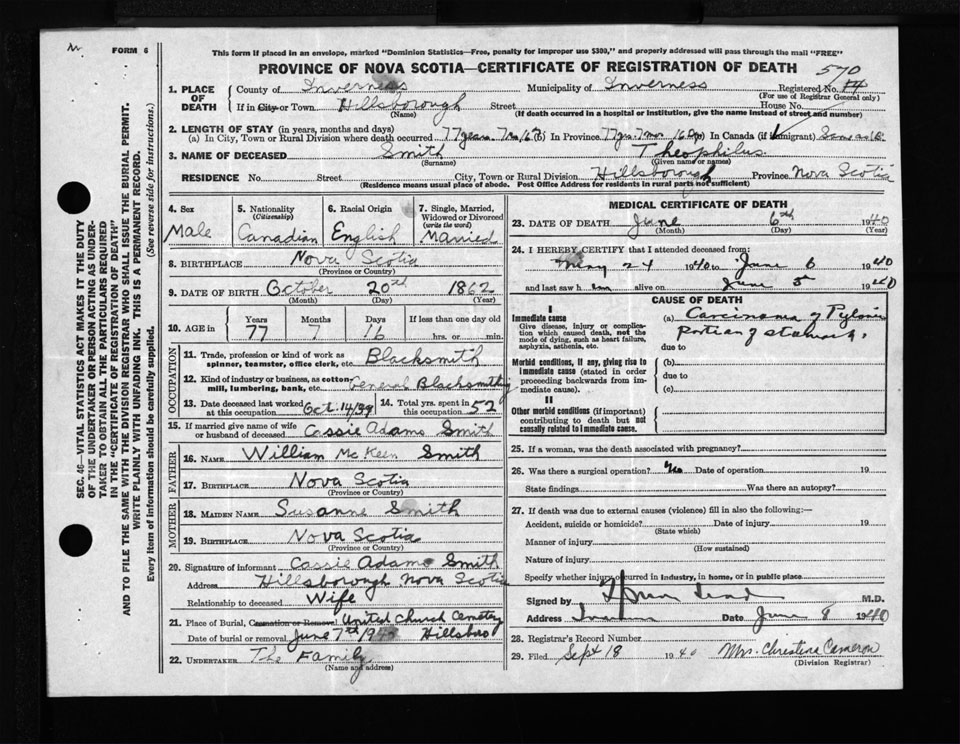 N
FORM 6
This form if placed in an envelope, marked "Dominion Statistics—Free, penalty for improper use $300," and properly addressed will pass through the mail "FREE"
PROVINCE OF NOVA SCOTIA—CERTIFICATE OF REGISTRATION OF DEATH
570
1. PLACE OF DEATH County of Inverness Municipality of Inverness Registered No. 14
(For use of Registrar General only)
If in City or Town Hillsborough Street House No.
(Name) (If death occurred in a hospital or institution, give the name instead of street and number)
2. LENGTH OF STAY (in years, months and days)
(a) In City, Town or Rural Division where death occurred 77 years-7mo/6 In Province 77yrs.7mos 16 In Canada (if immigrant)
3. NAME OF DECEASED Smith Theophilus
(Surname) (Given name or names)
RESIDENCE No. Street City, Town or Rural Division Hillsborough Province Nova Scotia
(Residence means usual place of abode. Post Office Address for residents in rural parts not sufficient)
4. Sex Male
5. Nationality (Citizenship) Canadian
6. Racial Origin English
7. Single, Married, Widowed or Divorced (write the word) Married
8. BIRTHPLACE Nova Scotia
(Province or Country)
9. DATE OF BIRTH October 20th 1862
(Month) (Day) (Year)
10. AGE in Years Months Days If less than one day old
77 7 16 hrs. or min.
OCCUPATION
11. Trade, profession or kind of work as spinner, teamster, office clerk, etc. Blacksmith
12. Kind of industry or business, as cotton mill, lumbering, bank, etc. General Blacksmithing
13. Date deceased last worked at this occupation Oct. 14/39
14. Total yrs. spent in this occupation 52
15. If married give name of wife or husband of deceased Cassie Adams Smith
FATHER
16. NAME William McKeen Smith
17. BIRTHPLACE Nova Scotia
(Province or Country)
MOTHER
18. MAIDEN NAME Susanne Smith
19. BIRTHPLACE Nova Scotia
(Province or Country)
20. Signature of informant Cassie Adams Smith
Address Hillsborough Nova Scotia
Relationship to deceased Wife
21. Place of Burial, Cremation or Removal United Church Cemetery
Date of burial or removal June 7th 1940 Hillsboro
22. UNDERTAKER The Family
(Name and address)
MEDICAL CERTIFICATE OF DEATH
23. DATE OF DEATH June 6th 1940
(Month) (Day) (Year)
24. I HEREBY CERTIFY that I attended deceased from:
May 24 1940 to June 6 1940
and last saw h im alive on June 5 1940
CAUSE OF DEATH
I
Immediate cause
Give disease, injury or complication which caused death, not the mode of dying, such as heart failure, asphyxia, asthenia, etc.
(a) Carcinoma of Pyloric
Portion of stomach.
due to
Morbid conditions, if any, giving rise to immediate cause (stated in order proceeding backwards from immediate cause).
(b)
due to
(c)
II
Other morbid conditions (if important) contributing to death but not causally related to immediate cause.
25. If a woman, was the death associated with pregnancy?
26. Was there a surgical operation? No Date of operation 19
State findings Was there an autopsy?
27. If death was due to external causes (violence) fill in also the following:—
Accident, suicide or homicide? Date of injury 19
(State which)
Manner of injury
(How sustained)
Nature of injury
Specify whether injury occurred in industry, in home, or in public place
Signed by M.D.
Address Date June 8 1940
28. Registrar's Record Number
29. Filed Sept 18 1940 Mrs. Christina Cameron
(Division Registrar)
SEC. 46—VITAL STATISTICS ACT MAKES IT THE DUTY
OF THE UNDERTAKER OR PERSON ACTING AS UNDER-
TAKER TO OBTAIN ALL THE PARTICULARS REQUIRED
IN THE "CERTIFICATE OF REGISTRATION OF DEATH"
AND TO FILE THE SAME WITH THE DIVISION REGISTRAR WHO SHALL ISSUE THE BURIAL PERMIT.
WRITE PLAINLY WITH UNFADING INK. THIS IS A PERMANENT RECORD.
Every item of information should be carefully supplied. (See reverse side for instructions.)